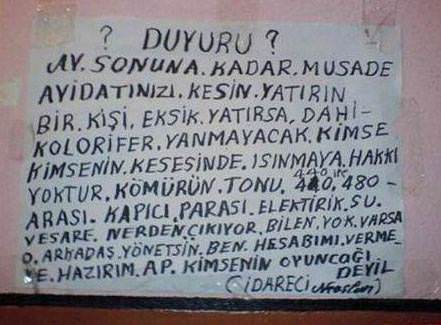 ? DUYURU ?
AY. SONUNA. KADAR. MUSADE
AYIDATINIZI. KESİN. YATIRIN
BİR. KİŞİ. EKSİK. YATIRSA. DAHİ-
KOLORİFER. YANMAYACAK. KİMSE
KİMSENİN. KESESİNDE. ISINMAYA. HAKKI
YOKTUR. KÖMÜRÜN. TONU. 440 480 -
ARASI. KAPICI. PARASI. ELEKTİRİK. SU.
VESARE. NERDEN. ÇIKIYOR. BİLEN. YOK. VARSA
O. ARKADAŞ. YÖNETSİN. BEN. HESABIMI. VERME-
YE. HAZIRIM. AP. KİMSENİN. OYUNCAĞI
DEYİL
(İDARECİ